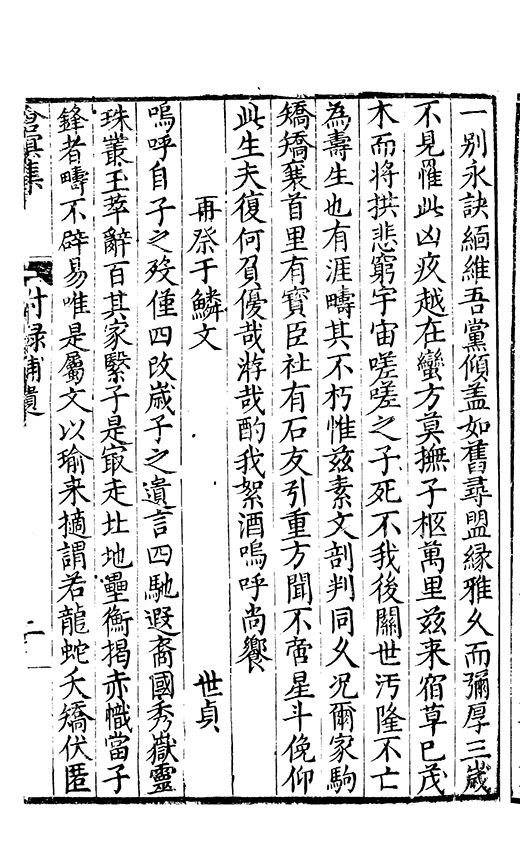 一別永訣緬維吾黨傾盖如舊尋盟縁雅久而彌厚三歲
不見罹此凶疚越在蠻方莫撫子柩萬里兹来宿草已茂
木而将拱悲窮宇宙嗟嗟之子死不我後關世汚隆不亡
為壽生也有涯疇其不朽惟兹素文剖判同久况爾家駒
矯矯褭首里有寳臣社有石友引重方聞不啻星斗俛仰
此生夫復何負優哉游哉酌我絮酒嗚呼尚饗
再祭于鱗文 世貞
嗚呼自子之殁僅四改歲子之遺言四馳遐裔國秀嶽靈
珠叢玉萃辭百其家繄子是最走壯地壘衡揭赤幟當子
鋒者疇不辟易唯是屬文以瑜来擿謂若龍蛇夭矯伏匿
滄溟集 附録補遺 二